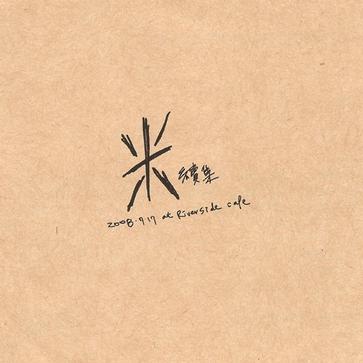 米 續集
2008.9.17 at Riverside cafe